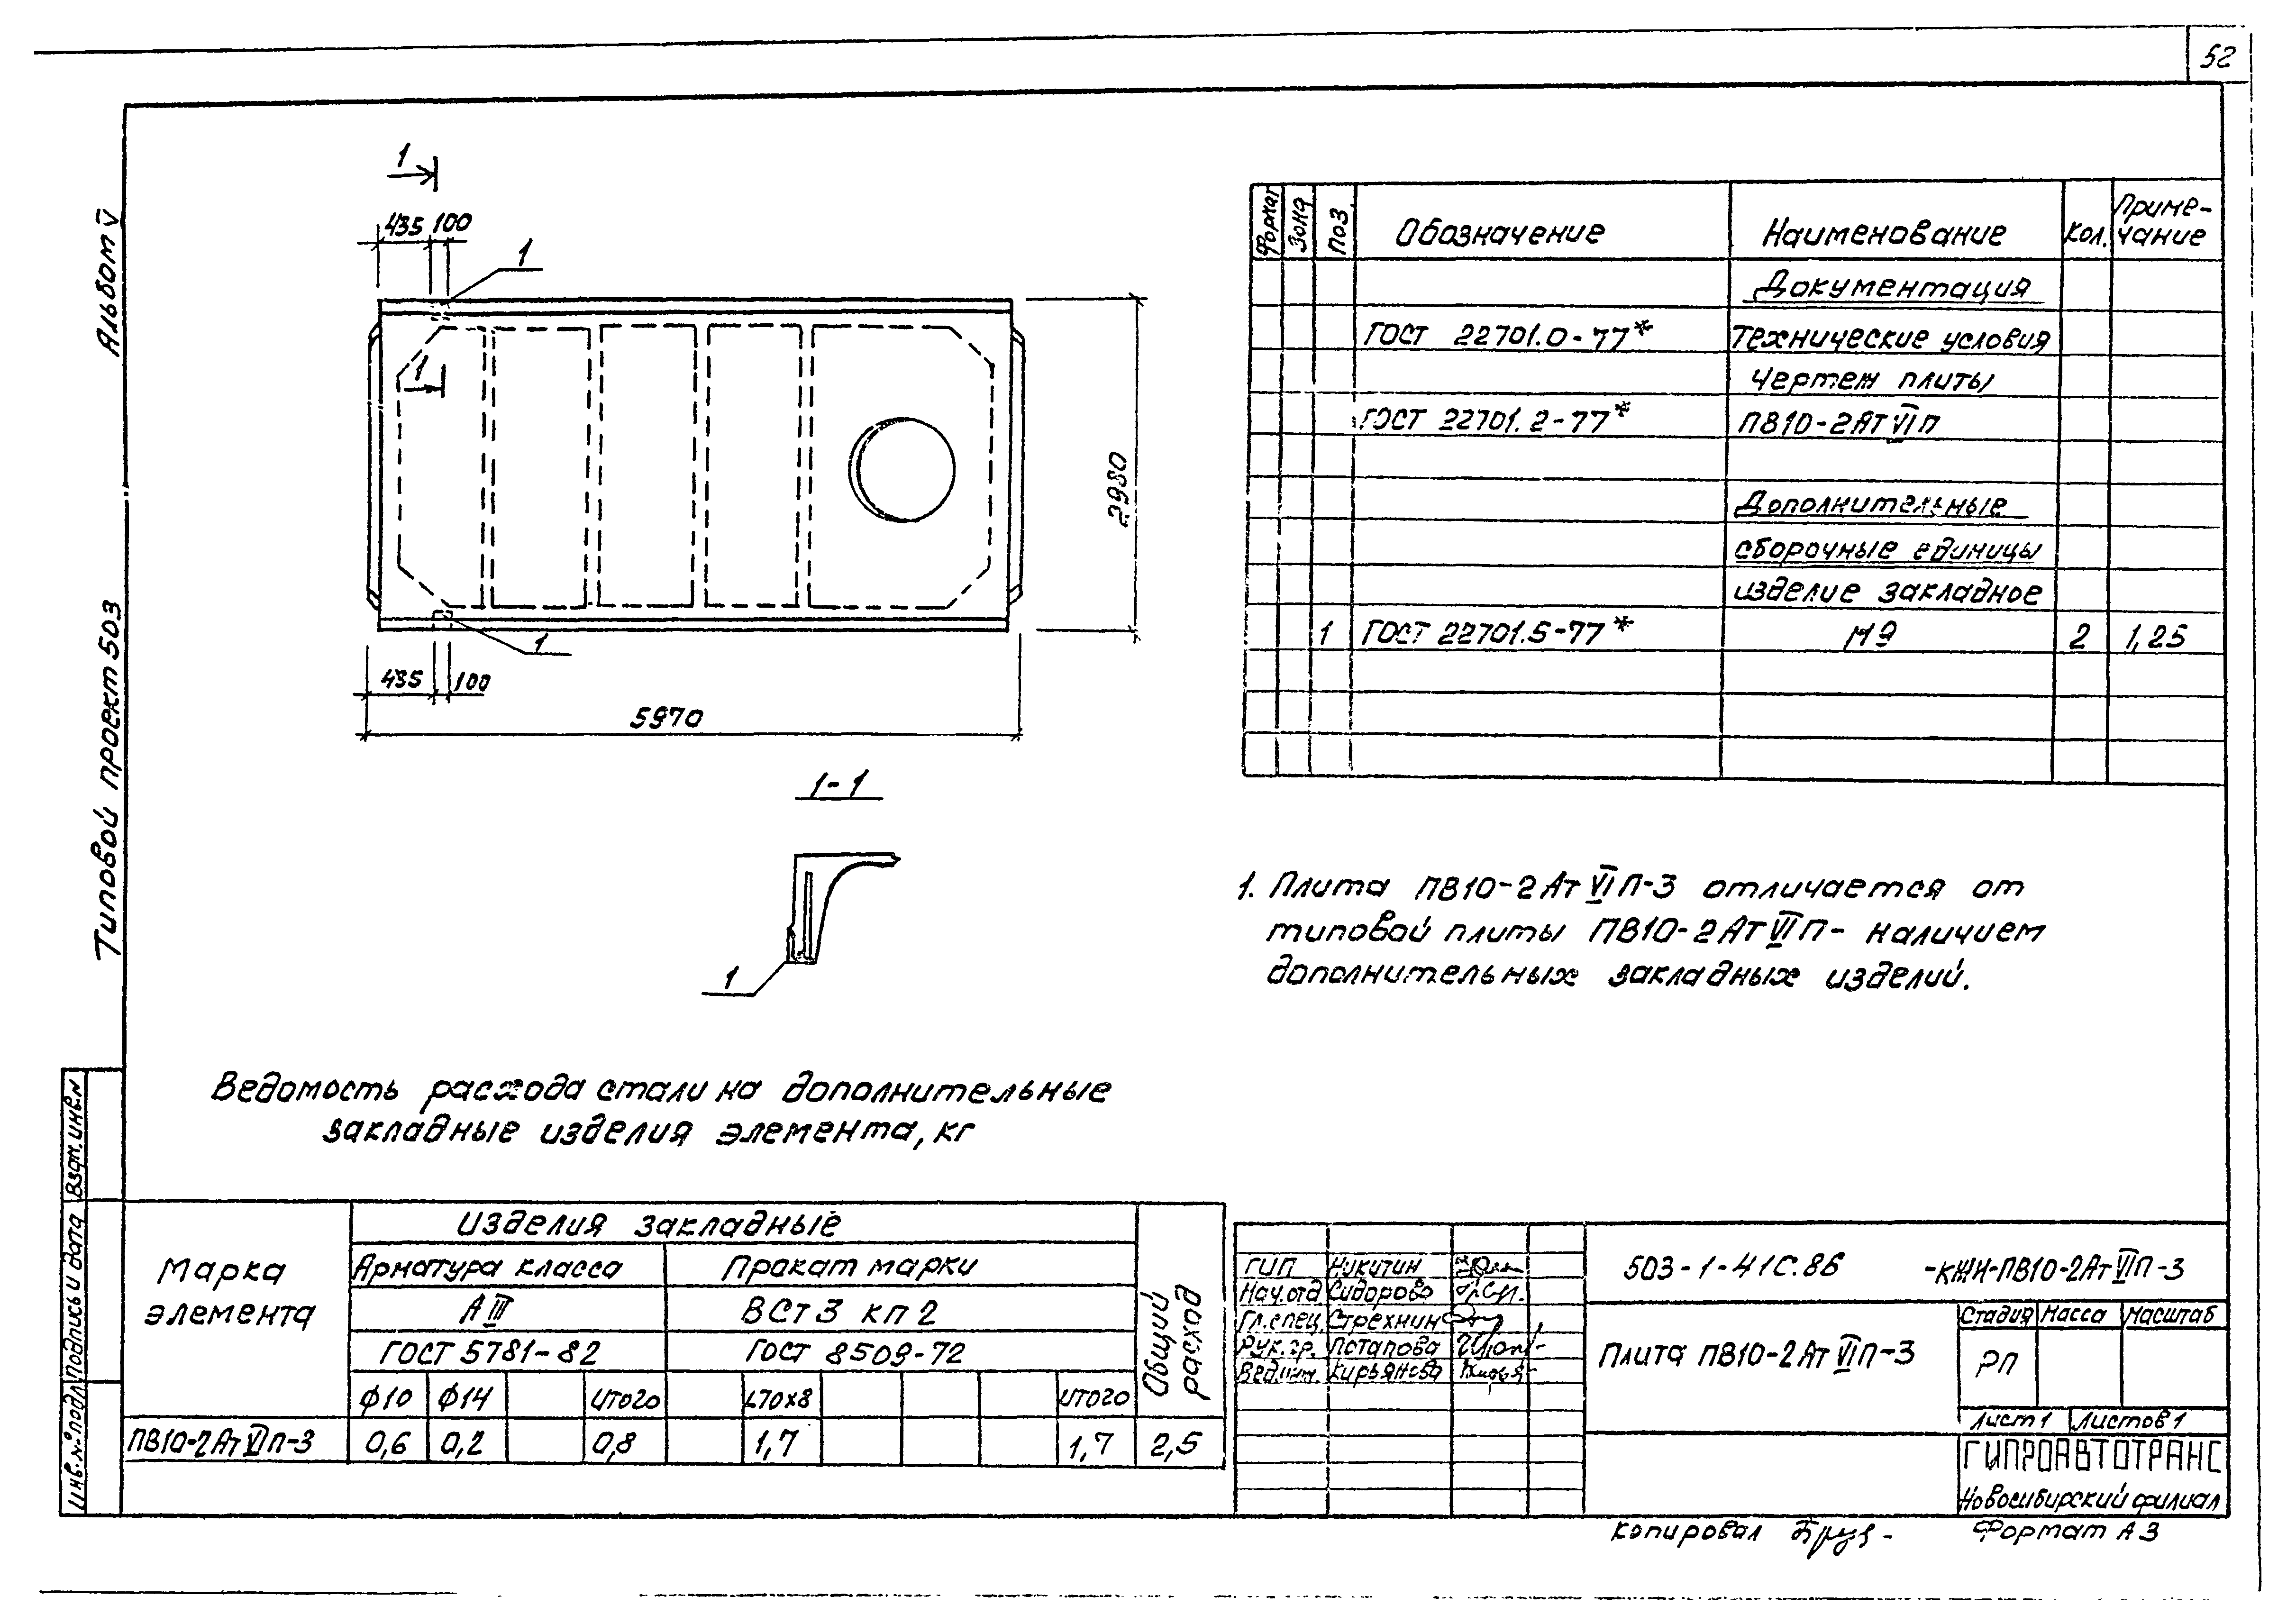 52
Альбом V
Типовой проект 503
1
435 100
1
1
2980
1
435 100
5970
1-1
1
Формат Зона Поз. Обозначение Наименование Кол. Приме-
чание
Документация
ГОСТ 22701.0-77* Технические условия
Чертеж плиты
ГОСТ 22701.2-77* ПВ10-2АтVIП
Дополнительные
сборочные единицы
изделие закладное
1 ГОСТ 22701.5-77* М9 2 1,25
1. Плита ПВ10-2АтVIП-3 отличается от
типовой плиты ПВ10-2АтVIП- наличием
дополнительных закладных изделий.
Ведомость расхода стали на дополнительные
закладные изделия элемента, кг
Марка
элемента
Изделия закладные
Общий
расход
Арматура класса Прокат марки
АIII ВСт3 кп2
ГОСТ 5781-82 ГОСТ 8509-72
ф10 ф14 итого L70х8 итого
ПВ10-2АтVIП-3 0,6 0,2 0,8 1,7 1,7 2,5
Взам.инв.N
Подпись и дата
Инв.N°подл
ГИП Никитин
Нач.отд Сидорова
Гл.спец. Стрехнин
Рук.гр. Потапова
Вед.инж. Кирьянова
503-1-41С.86 -КЖИ-ПВ10-2АтVIП-3
Плита ПВ10-2АтVIП-3
Стадия Масса Масштаб
РП
Лист 1 Листов 1
ГИПРОАВТОТРАНС
Новосибирский филиал
Копировал Формат А3